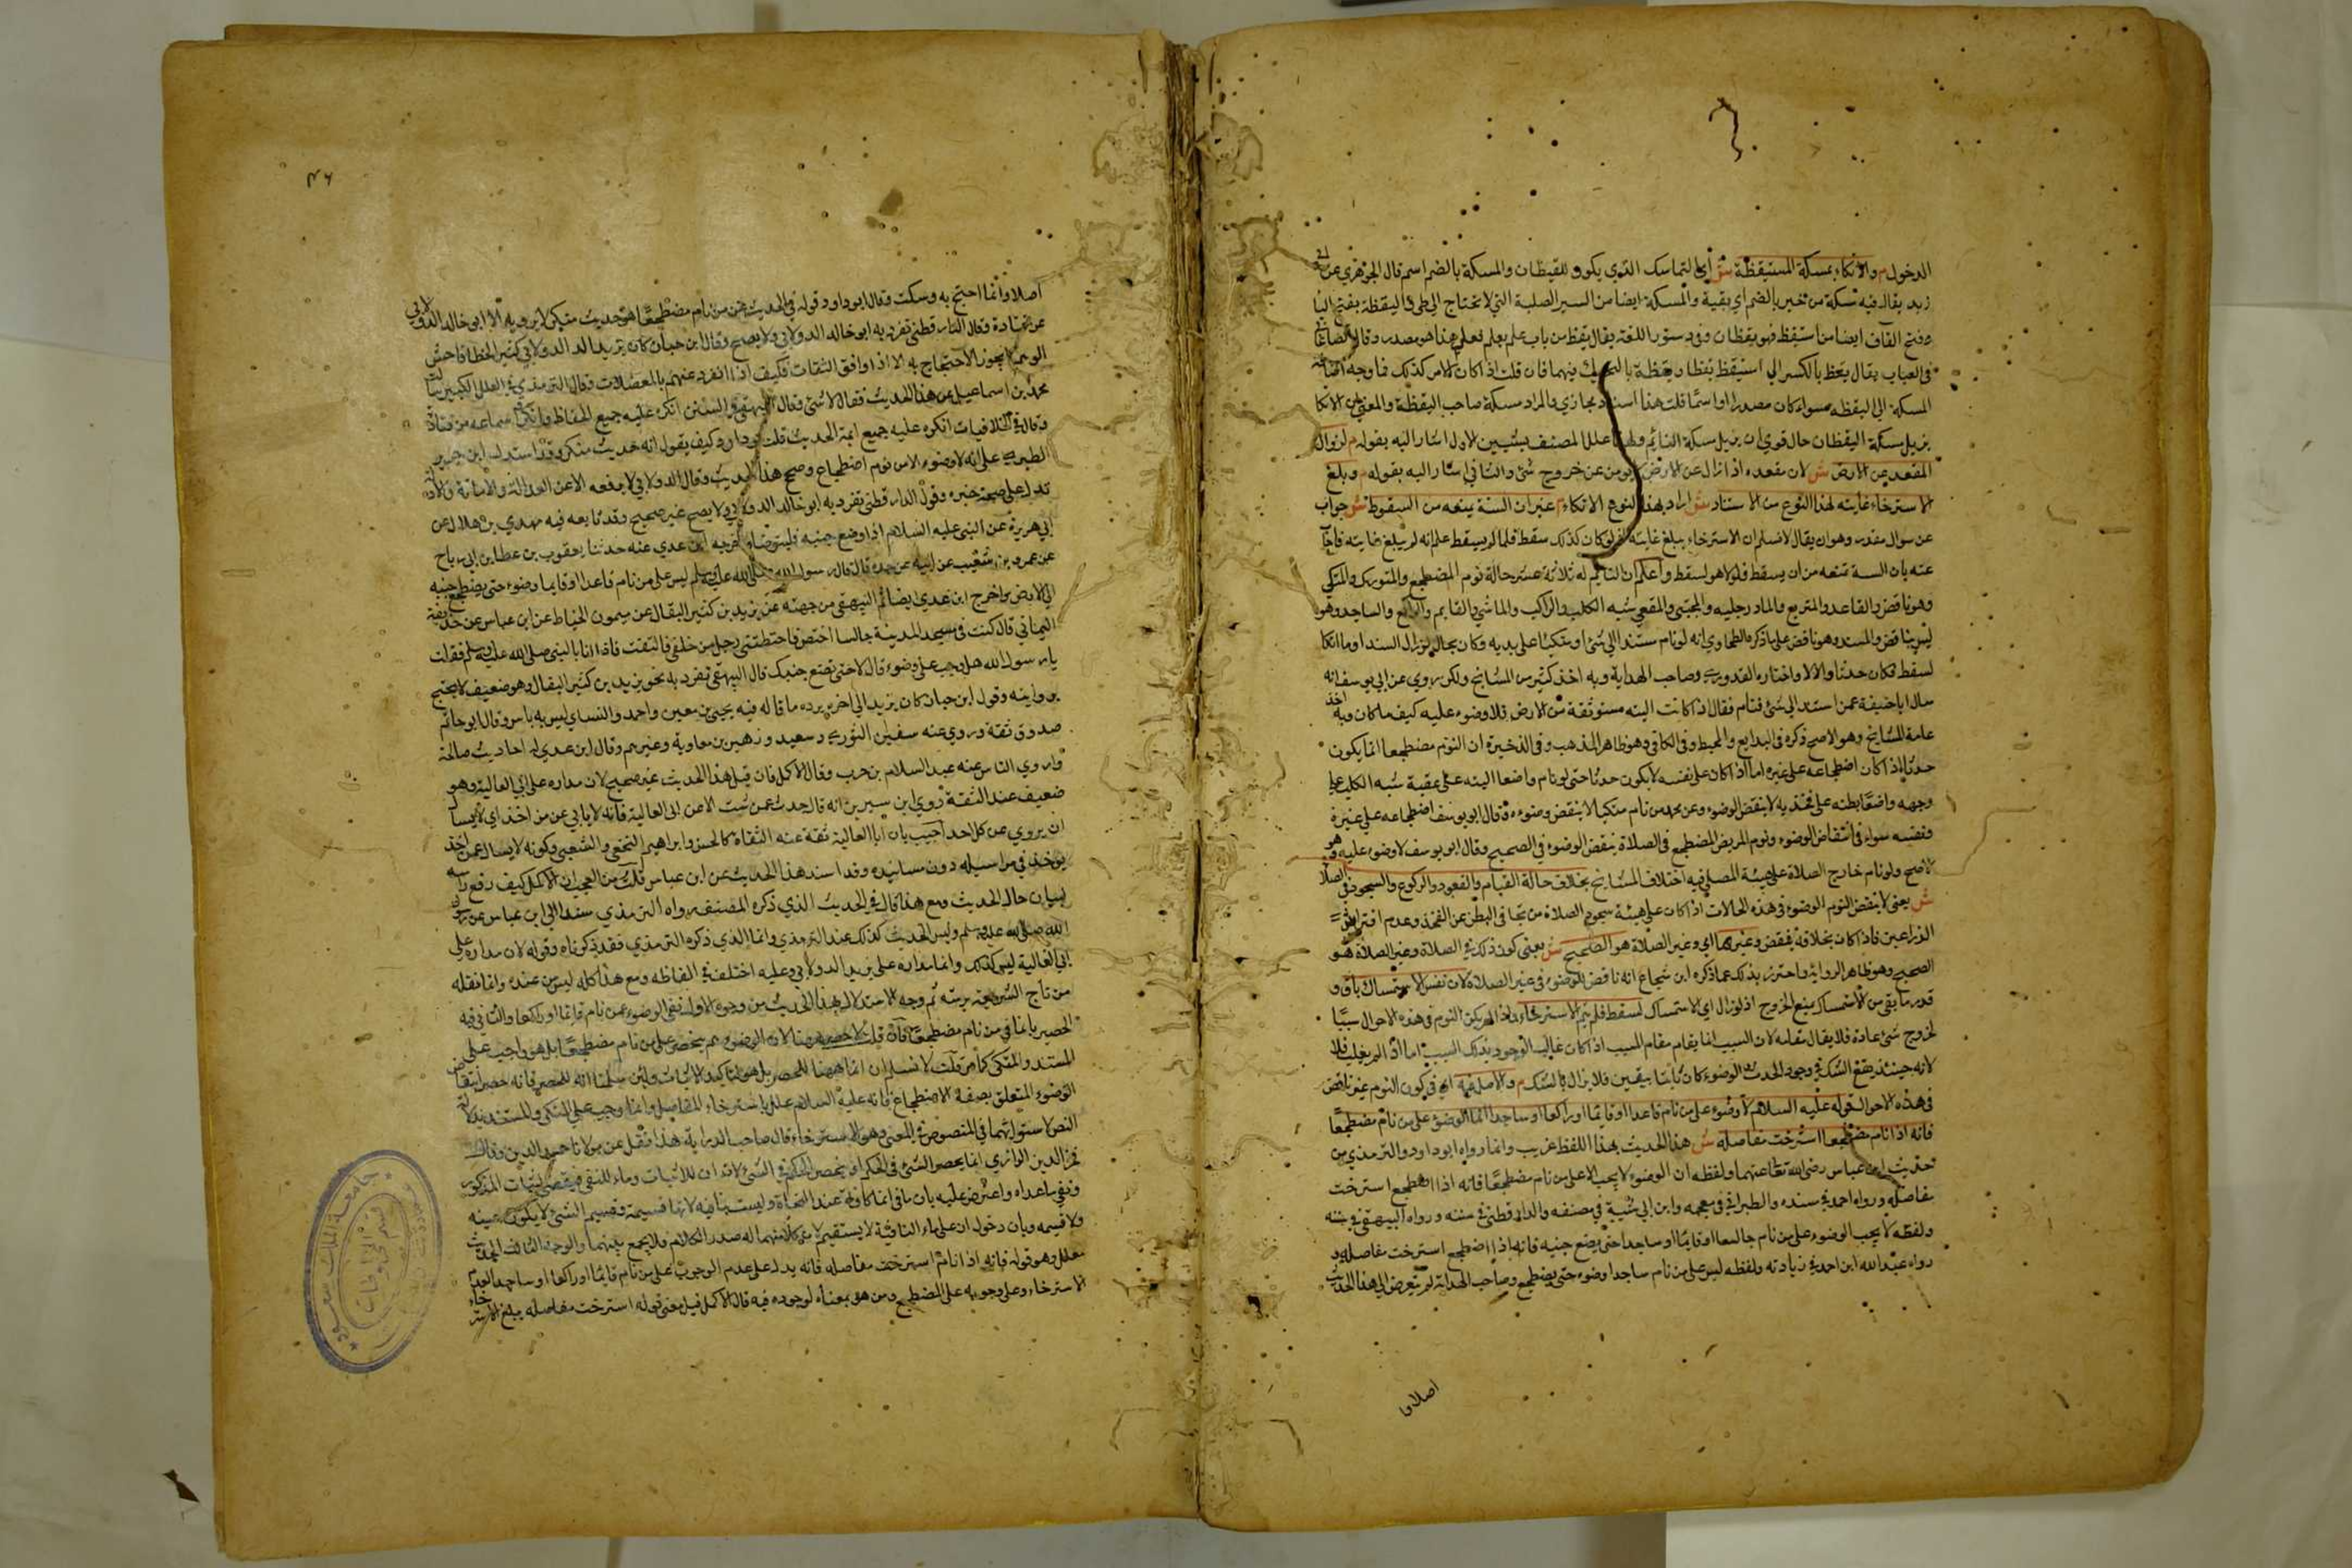 الدخول م والاتكاء بمسكة المستيقظة ش اي التماسك الذي يكون لليقظان والمسكة بالضم اسم قال الجوهري عن ابي
زيد يقال فيه مسكة من خير بالضم اي بقية والمسكة ايضا من البير الصلبة التي لا تحتاج الى طي واليقظة بفتح اليا
وفتح القاف ايضا من استيقظ فهو يقظان وفي دستور اللغة يقال يقظ من باب علم يعلم فعلى هذا هو مصدر وقال الصاغاني
في العباب يقال يقظ بالكسر اي استيقظ يقظا ويقظة بالتحريك فيهما فان قلت اذا كان الامر كذلك فما وجه اضافة
المسكة الى اليقظة سواء كان مصدرا او اسما قلت هذا اسناد مجازي والمراد مسكة صاحب اليقظة والمعنى ان الاتكا
يزيل مسكة اليقظان حال قوي ان يزيل مسكة النايم ولهذا علل المصنف بشيين الاول اشار اليه بقوله م لزوال
المقعد عن الارض ش لان مقعده اذا زال عن الارض لا يومن عن خروج شئ والثاني اشار اليه بقوله م وبلغ
الاسترخاء غايته لهذا النوع من الاستناد ش اراد بهذا النوع الاتكاء م غير ان السنة يمنعه من السقوط ش جواب
عن سوال مقدر وهو ان يقال لا نسلم ان الاسترخاء يبلغ غايته اذ لو كان كذلك سقط فلما لم يسقط علم انه لم يبلغ غايته فاجاب
عنه بان السنة تمنعه من ان يسقط فلولا هو لسقط واعلم ان النايم له ثلاثة عشر حالة نوم المضطجع والمتورك والمتكي
وهو ناقض والقاعد والمتربع والماد رجليه والمحتبي والمقعي شبه الكلب والراكب والماشي والقايم والراكع والساجد وهو
ليس بناقض والمستند وهو ناقض على ما ذكره الطحاوي انه لو نام مستندا الى شئ او متكئا على يديه وكان بحال لو زال السند او ما اتكا
لسقط فكان حدثا والا لا واختاره القدوري وصاحب الهداية وبه اخذ كثير من المشايخ ولكن روي عن ابي يوسف انه
سال ابا حنيفة عمن استند الى شئ فنام فقال اذا كانت اليته مستوثقة من الارض فلا وضوء عليه كيف ما كان وبه اخذ
عامة المشايخ وهو الاصح ذكره في البدايع والمحيط وفي الكافي وهو ظاهر المذهب وفي الذخيرة ان النوم مضطجعا انما يكون
حدثا اذا كان اضطجاعه على غيره اما اذا كان على نفسه لا يكون حدثا حتى لو نام واضعا اليته على عقبية شبه الكلب على
وجهه واضعا بطنه على فخذيه لا ينقض الوضوء وعن محمد من نام متكيا لا ينقض وضوءه وقال ابو يوسف اضطجاعه على غيره
ونفسه سواء في انتقاض الوضوء ونوم المريض المضطجع في الصلاة ينقض الوضوء في الصحيح وقال ابو يوسف لا وضوء عليه وهو
الاصح ولو نام خارج الصلاة على هيئة المصلي فيه اختلاف المشايخ بخلاف حالة القيام والقعود والركوع والسجود في الصلاة
ش يعني لا ينقض النوم الوضوء في هذه الحالات اذا كان على هيئة سجود الصلاة من تجافي البطن عن الفخذ وعدم افتراش
الذراعين فاذا كان بخلافه ينقض وغيرها اي وغير الصلاة هو الصحيح ش يعني كون ذلك في الصلاة وغير الصلاة هو
الصحيح وهو ظاهر الرواية واحترز بذلك عما ذكره ابن شجاع انه ناقض للوضوء في غير الصلاة لان نفس الاستمساك باق و
قدر ما بقي من الاستمساك يمنع الخروج اذ لو زال اي الاستمساك لسقط فلم يتم الاسترخاء واذا لم يكن النوم في هذه الاحوال سببا
لخروج شئ عادة فلا يقال مقامه لان السبب انما يقام مقام المسبب اذا كان غالب الوجود بذلك السبب اما اذا لم يغلب فلا
لانه حينئذ يقع الشك في وجود الحدث والوضوء كان ثابتا بيقين فلا يزال بالشك م والاصل فيه اي في كون النوم غير ناقض
في هذه الاحوال قوله عليه السلام لا وضوء على من نام قاعدا او قايما او راكعا او ساجدا انما الوضوء على من نام مضطجعا
فانه اذا نام مضطجعا استرخت مفاصله ش هذا الحديث بهذا اللفظ غريب وانما رواه ابو داود والترمذي من
حديث ابن عباس رضي الله تعا عنهما ولفظه ان الوضوء لا يجب الا على من نام مضطجعا فانه اذا اضطجع استرخت
مفاصله ورواه احمد في مسنده والطبراني في معجمه وابن ابي شيبة في مصنفه والدارقطني في سننه ورواه البيهقي في سننه
ولفظه لا يجب الوضوء على من نام جالسا او قايما او ساجدا حتى يضع جنبه فانه اذا اضطجع استرخت مفاصله و
رواه عبد الله ابن احمد في زياداته ولفظه ليس على من نام ساجدا وضوء حتى يضطجع وصاحب الهداية لم يتعرض الى هذا الحديث
اصلا وا
٤٦
اصلا وانما احتج به وسكت وقال ابو داود قوله في الحديث على من نام مضطجعا هو حديث منكر لا يرويه الا ابو خالد الدالاني
عن قتادة وقال الدارقطني تفرد به ابو خالد الدولابي ولا يصح وقال ابن حبان كان يزيد الدولابي كثير الخطا فاحش
الوهم لا يجوز الاحتجاج به الا اذا وافق الثقات فكيف اذا انفرد عنهم بالمعضلات وقال الترمذي في العلل الكبير سالت
محمد بن اسماعيل عن هذا الحديث فقال لا شئ وقال البيهقي في السنن انكره عليه جميع الحفاظ وانكر سماعه من قتادة
وقال في الخلافيات انكره عليه جميع ايمة الحديث قلت ابو داود كيف يقول انه حديث منكر وقد استدل ابن جرير
الطبري على انه لا وضوء الا من نوم اضطجاع وصحح هذا الحديث وقال الدولابي لا يدفعه الا عن العدالة والامانة والادلة
تدل على صحة خبره وقول الدارقطني تفرد به ابو خالد الدولابي ولا يصح غير صحيح وقد تابعه فيه مهدي بن هلال عن
ابي هريرة عن النبي عليه السلام اذا وضع جنبه فليتوضا واخرجه ابن عدي عنه حدثنا يعقوب بن عطا بن ابي رباح
عن عمرو بن شعيب عن ابيه عن جده قال قال رسول الله صلى الله عليه وسلم ليس على من نام قاعدا او قايما وضوء حتى يضطجع جنبه
الى الارض واخرج ابن عدي ايضا ثم البيهقي من جهته عن يزيد بن كثير البقال عن ميمون الخياط عن ابن عباس عن حذيفة
اليماني قال كنت في مسجد المدينة جالسا اختض فاحتطتني رجل من خلفي فالتفت فاذا انا بالنبي صلى الله عليه وسلم فقلت
يا رسول الله هل وجب علي وضوء قال لا حتى تضع جنبك قال البيهقي تفرد به بحر يزيد بن كثير البقال وهو ضعيف لا يحتج
بروايته وقول ابن حبان كان يزيد الى اخره يرده ما قاله فيه يحيى بن معين واحمد والنساي ليس به باس وقال ابو حاتم
صدوق ثقة وروي عنه سفين الثوري وسعيد وزهير بن معاوية وغيرهم وقال ابن عدي له احاديث صالحة
وروي الناس عنه عبد السلام بن حرب وقال الاكمل فان قيل هذا الحديث غير صحيح لان مداره على ابي العالية وهو
ضعيف عند الثقة روي ابن سيرين انه قال حدث عمن شئت الا عن ابي العالية فانه لا يبالي عن من اخذ اي لا يبالي
ان يروي عن كل احد اجيب بان ابا العالية ثقة عنه الثقاة كالحسن وابراهيم النخعي والشعبي وكونه لا يسال عمن اخذ
يوخذ في مراسيله دون مسانيده وقد اسند هذا الحديث عن ابن عباس قلت من العجب ان الاكمل كيف رفع راسه
لبيان حال الحديث ومع هذا قال في الحديث الذي ذكره المصنف رواه الترمذي مسندا الى ابن عباس عن رسول
الله صلى الله عليه وسلم وليس الحديث كذلك عند الترمذي وانما الذي ذكره الترمذي فقد ذكرناه وقوله لان مداره على
ابي العالية ليس كذلك وانما مداره على يزيد الدولابي وعليه اختلف في الفاظه ومع هذا كله ليس من عنده وانما نقله
من تاج الشريعة برمته ثم وجه الاستدلال بهذا الحديث من وجوه الاول نفي الوضوء عمن نام قايما او راكعا والثاني فيه
الحصر بانما في من نام مضطجعا فان قلت لا حصر هنا لان الوضوء لم ينحصر على من نام مضطجعا بل هو واجب على
المستند والمتكي كما مر قلت لا نسلم ان انما ههنا للحصر بل هو لتاكيد الاثبات ولئن سلمنا انه للحصر فانه حصر انتقاض
الوضوء المتعلق بصفة الاضطجاع فانه عليه السلام علل باسترخاء المفاصل وانما وجب على المتكي والمستند بدلالة
النص لاستوائهما في المنصوص في المعنى وهو الاسترخاء قال صاحب الدراية هذا نقل عن مولانا حميد الدين وقال
فخر الدين الرازي انما يحصر الشئ في الحكم او ينحصر الحكم في الشئ لان ان للاثبات وما للنفي فيقتضي اثبات المذكور
ونفي ما عداه واعترض عليه بان ما في انما كافة عند النحاة وليست بنافية لانها قسيمة وقسيم الشئ لا يكون عينه
ولا قسيمه وبان دخول ان على ماء النافية لا يستقيم لان كلا منهما له صدر الكلام ولا يجمع بينهما والوجه الثالث الحديث
معلل وهو قوله فانه اذا نام استرخت مفاصله فانه يدل على عدم الوجوب على من نام قايما او راكعا او ساجدا لعدم
الاسترخاء وعلى وجوبه على المضطجع ومن هو بمعناه لوجوده فيه قال الاكمل قيل معنى قوله استرخت مفاصله يبلغ الاسترخاء
جامعة الملك سعود
قسم المخطوطات